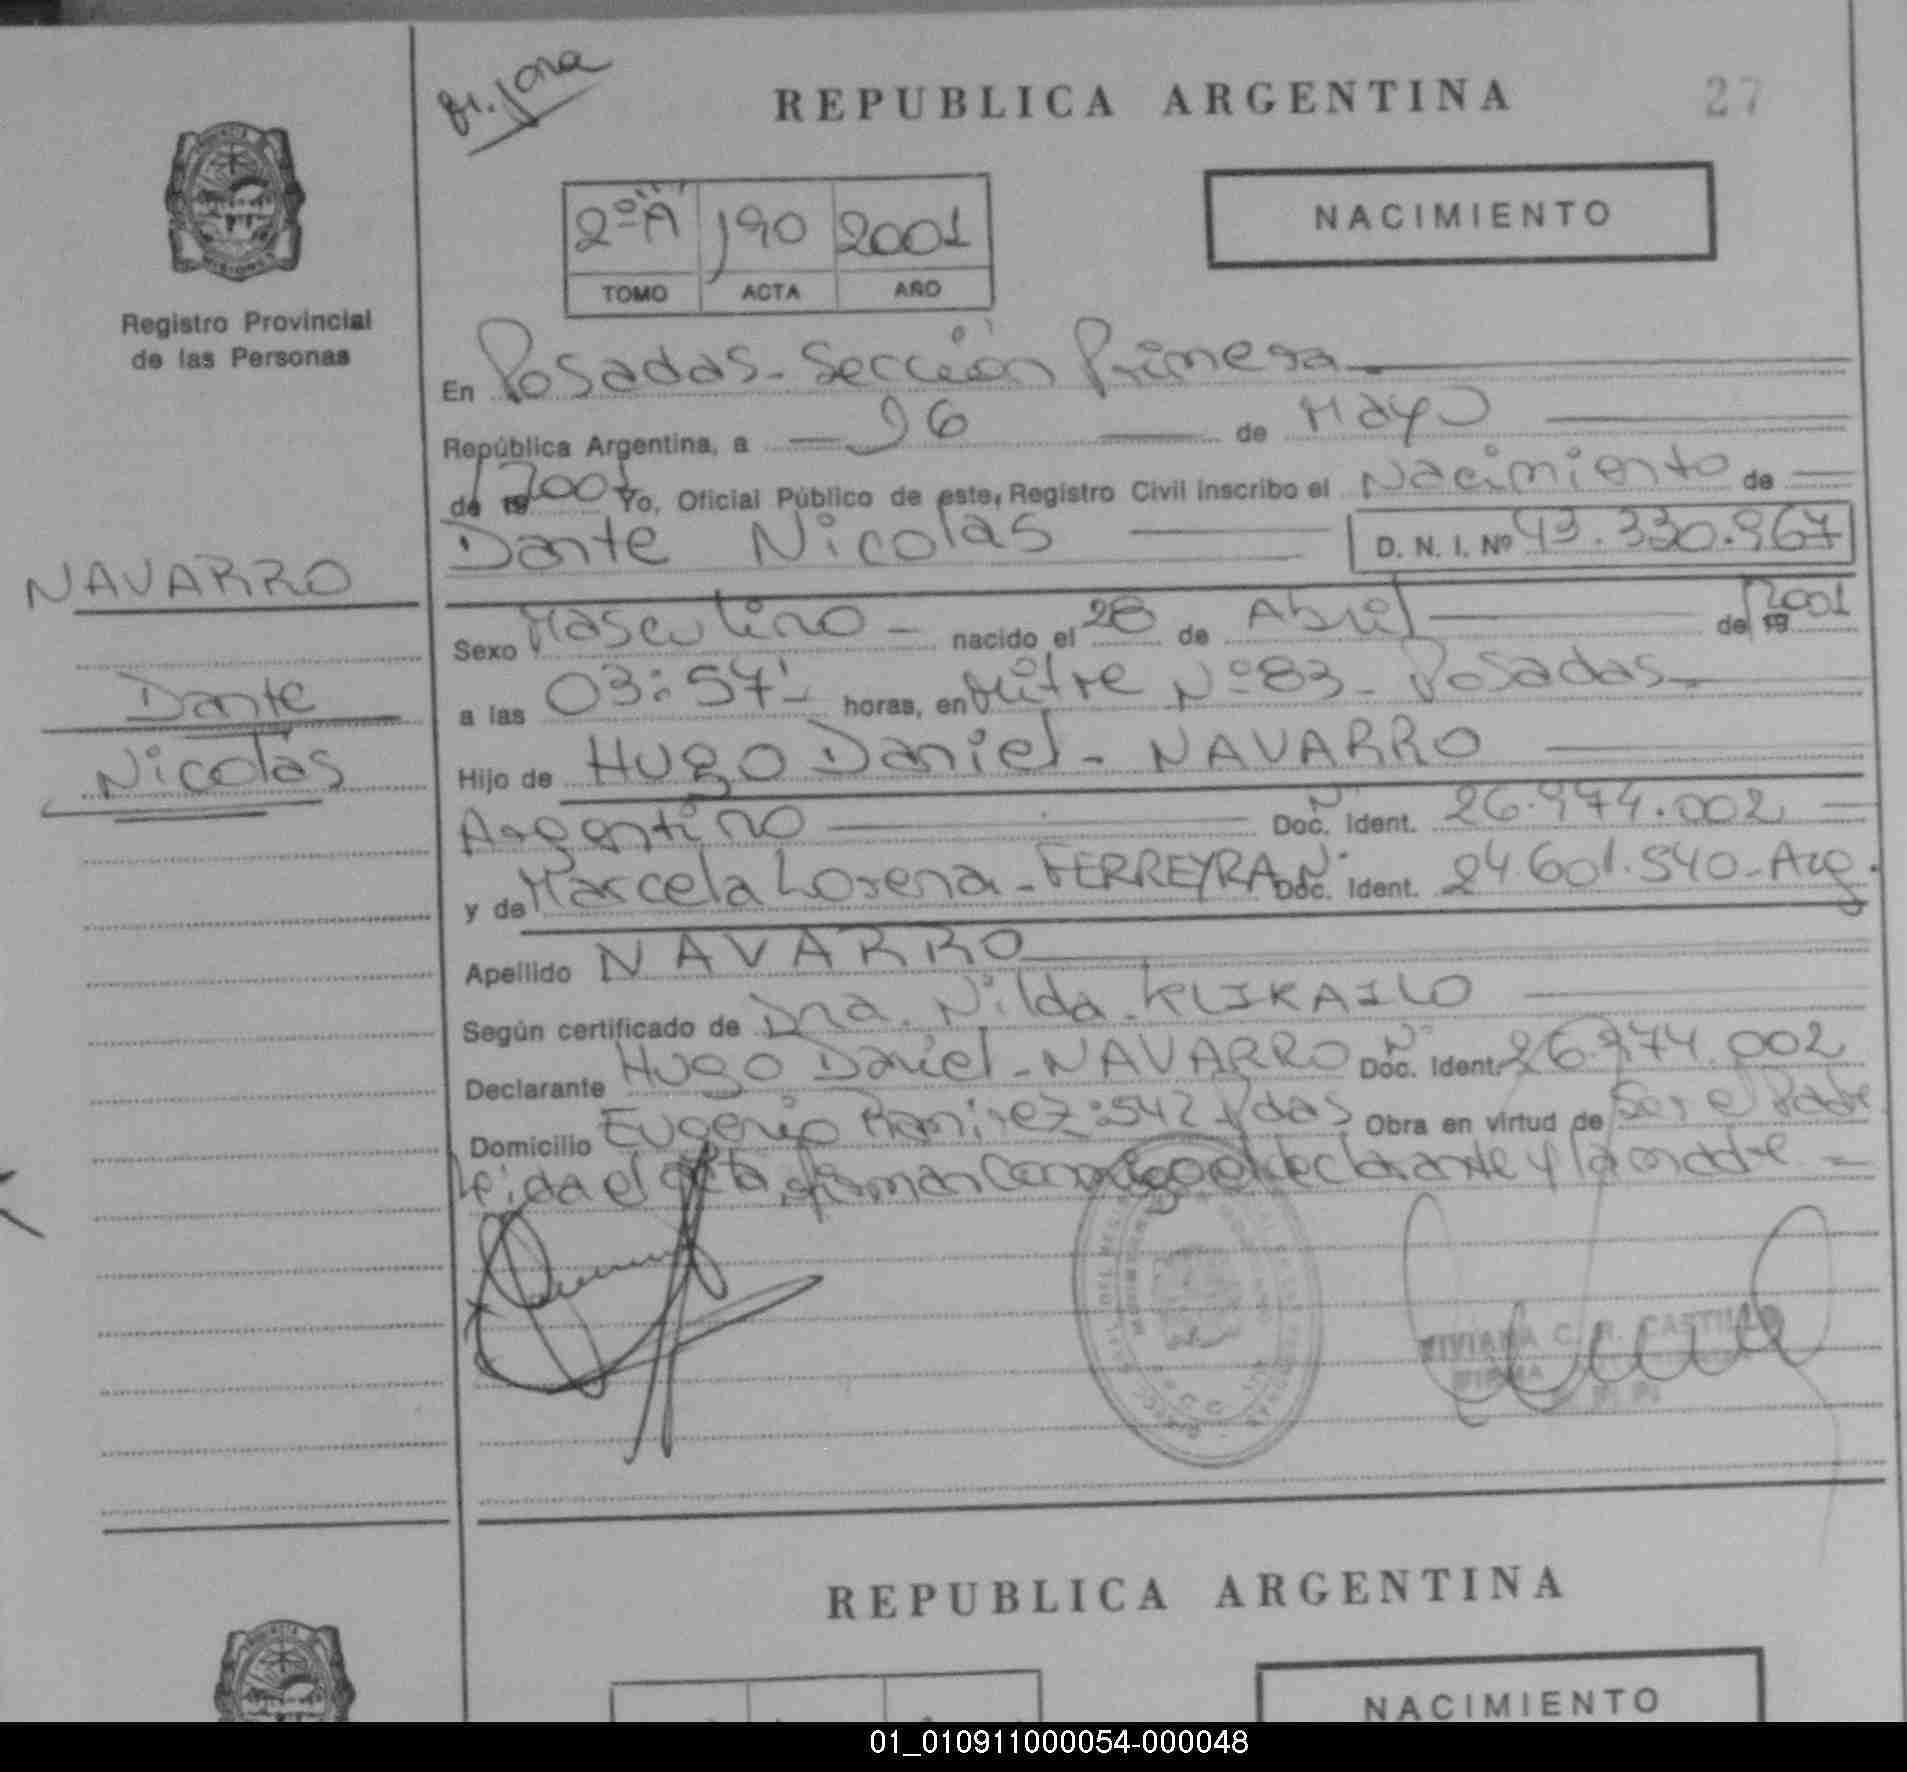 REPUBLICA ARGENTINA
27
NACIMIENTO
2ºA 190 2001
TOMO ACTA AÑO
Registro Provincial
de las Personas
En Posadas - Sección Primera
República Argentina, a 16 de Mayo
de 19 2001 Yo, Oficial Público de este, Registro Civil inscribo el Nacimiento de
Dante Nicolás D. N. I. Nº 43.330.967
NAVARRO
Dante
Nicolás
Sexo Masculino - nacido el 28 de Abril de 19 2001
a las 03:57' - horas, en Mitre Nº 83 - Posadas -
Hijo de Hugo Daniel - NAVARRO
Argentino Doc. Ident. Nº 26.974.002
y de Marcela Lorena - FERREYRA Doc. Ident. Nº 24.601.540 - Arg.
Apellido NAVARRO
Según certificado de Dra. Nilda KLIKAILO
Declarante Hugo Daniel - NAVARRO Doc. Ident. Nº 26.974.002
Domicilio Eugenio Ramirez: 542 Pdas Obra en virtud de Ser el Padre
Leida el acta, firman conmigo el declarante y la madre =
VIVIANA C. R. CASTILLO
REPUBLICA ARGENTINA
NACIMIENTO
01_010911000054-000048